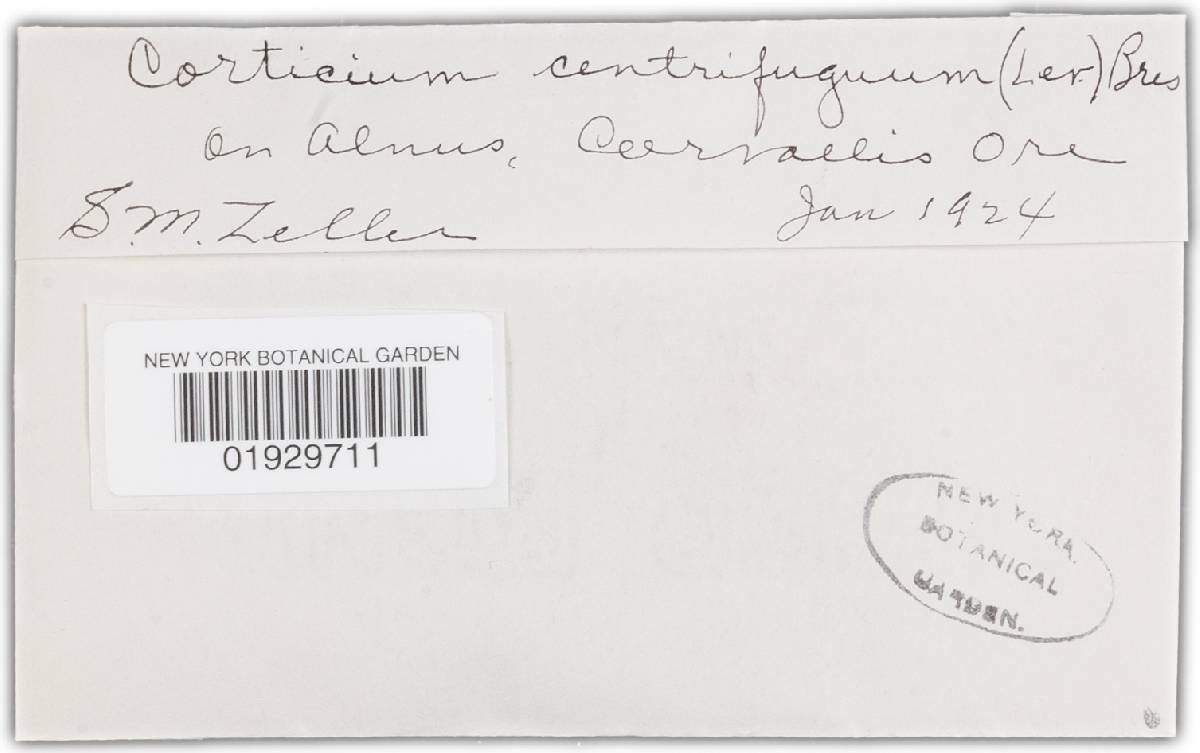 Corticium centrifuguum (Lev.) Bres
On Alnus, Corvallis Ore
S. M. Zeller Jan 1924
NEW YORK BOTANICAL GARDEN
01929711
NEW YORK
BOTANICAL
GARDEN.